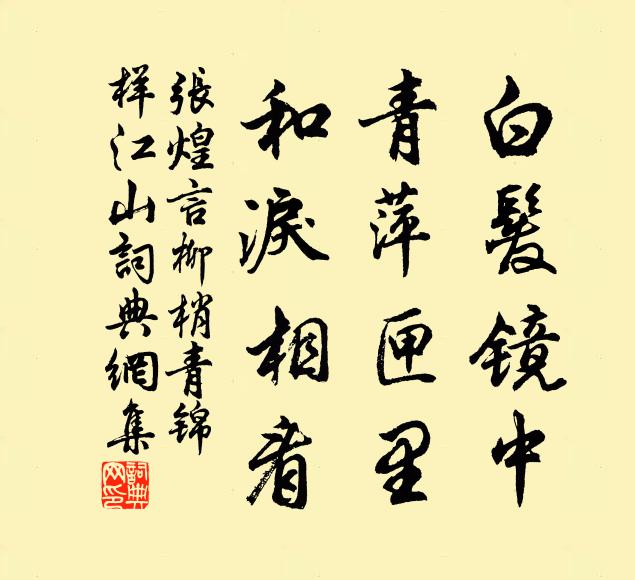 白髮镜中
青萍匣里
和淚相看
張煌言柳梢青錦
样江山詞典網集
詞典网印